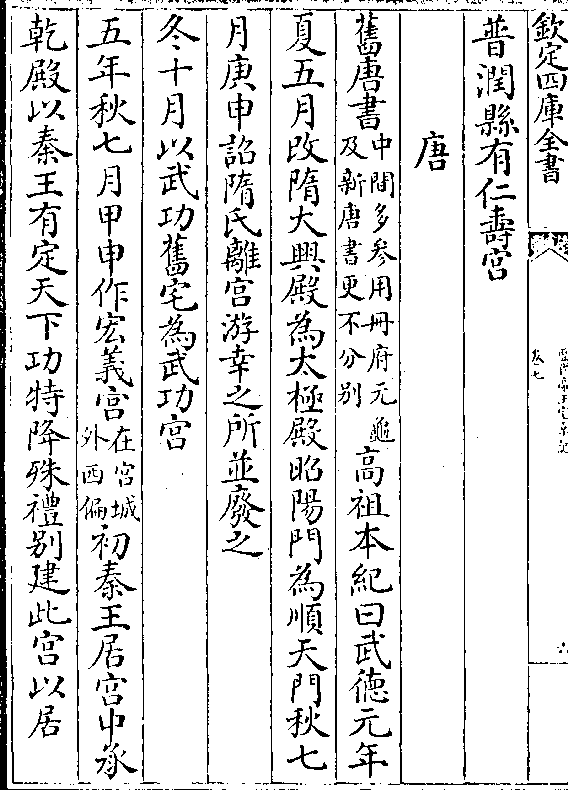 欽定四庫全書
卷七
普潤縣有仁壽宮
唐
舊唐書中間多參用冊府元龜及新唐書更不分別高祖本紀曰武德元年
夏五月改隋大興殿為太極殿昭陽門為順天門秋七
月庚申詔隋氏離宮游幸之所並廢之
冬十月以武功舊宅為武功宮
五年秋七月甲申作宏義宮在宮城外西偏初秦王居宮中承
乾殿以秦王有定天下功特降殊禮別建此宮以居